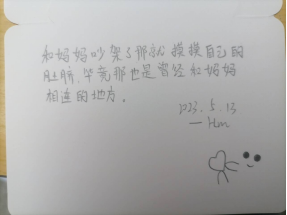 和妈妈吵架了那就摸摸自己的
肚脐,毕竟那也是曾经和妈妈
相连的地方。
P23.5.13
一Hm